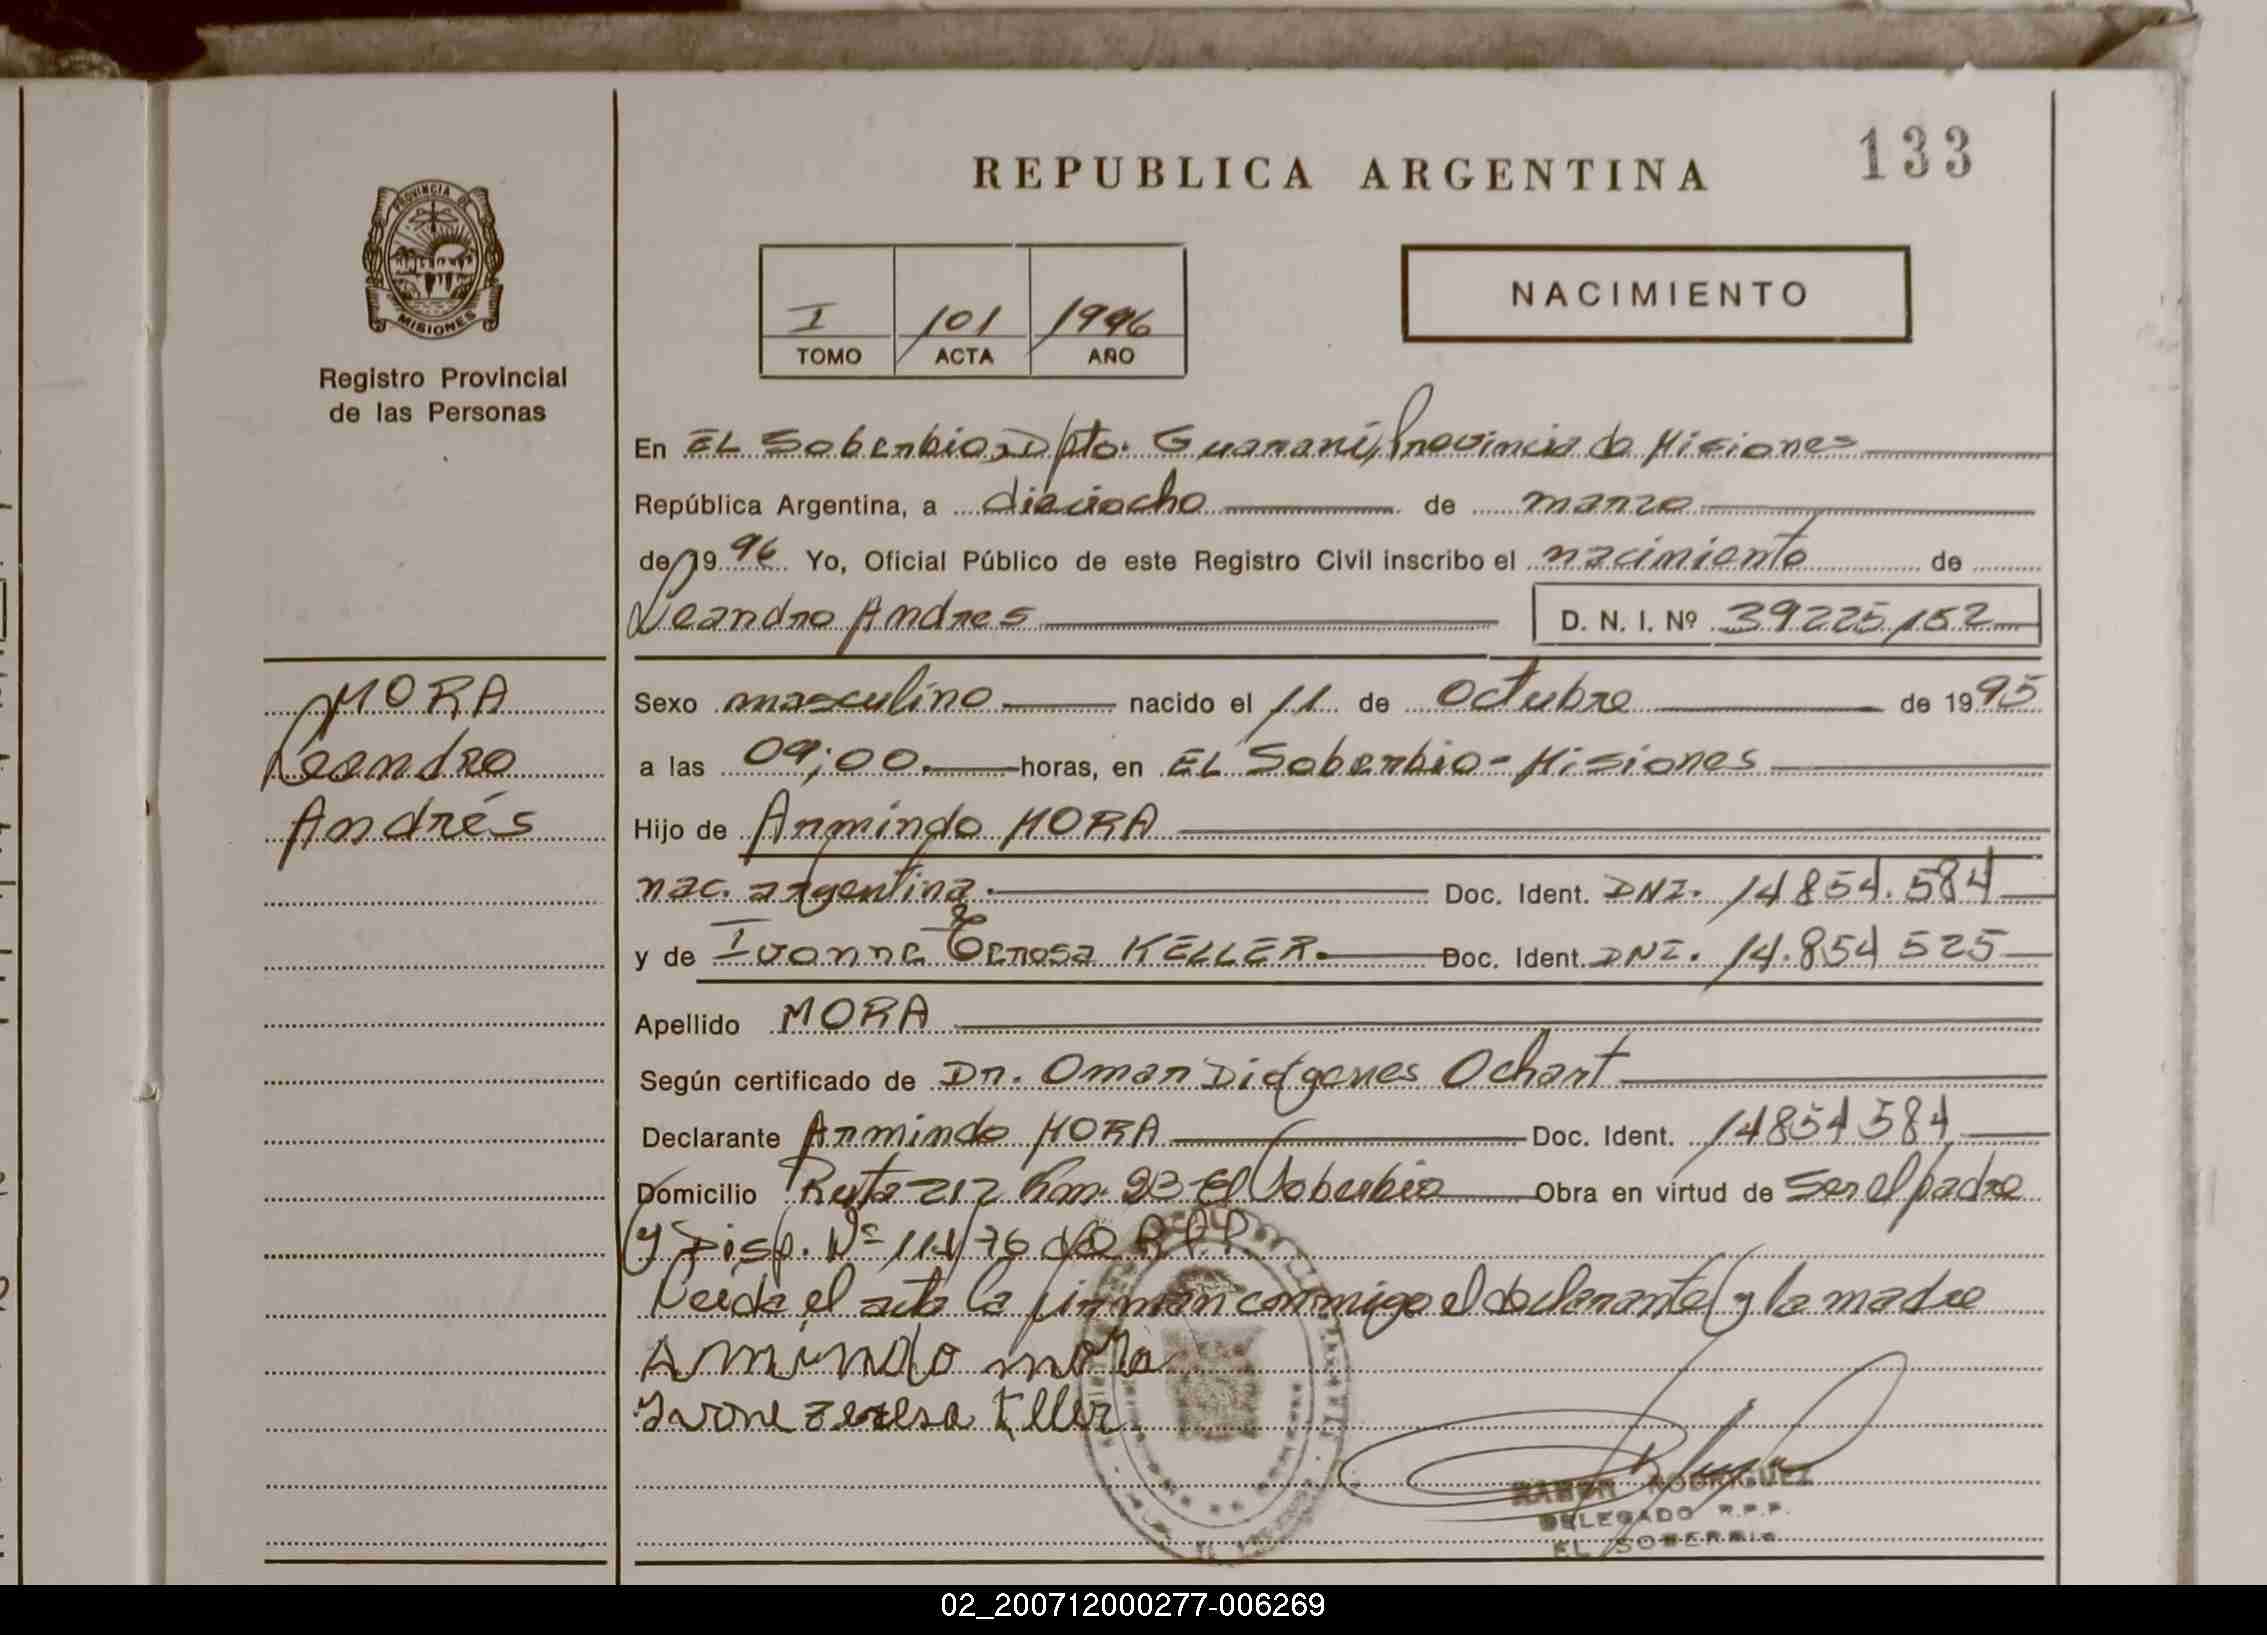 133
REPUBLICA ARGENTINA
PROVINCIA DE
MISIONES
Registro Provincial
de las Personas
NACIMIENTO
I 101 1996
TOMO ACTA AÑO
En EL Soberbio, Dpto. Guaraní, Provincia de Misiones
República Argentina, a dieciocho de marzo
de 1996 Yo, Oficial Público de este Registro Civil inscribo el nacimiento de
Leandro Andres D. N. I. Nº 39225,152
MORA
Leandro
Andrés
Sexo masculino nacido el 11 de Octubre de 1995
a las 09;00. horas, en EL Soberbio - Misiones
Hijo de Armindo MORA
nac. argentina. Doc. Ident. DNI. 14854.584
y de Ivonne Teresa KELLER. Doc. Ident. DNI. 14.854 525
Apellido MORA
Según certificado de Dr. Omar Diógenes Ochart
Declarante Armindo MORA Doc. Ident. 14854584
Domicilio Ruta 212 Km. 23 El Soberbio Obra en virtud de Ser el padre
y Disp. Nº 111/76 R.P.P.
Leida el acta la firman conmigo el declarante y la madre
Armindo mora
Ivone Teresa Keller
RAMON RODRIGUEZ
DELEGADO R.P.P.
EL SOBERBIO
02_200712000277-006269